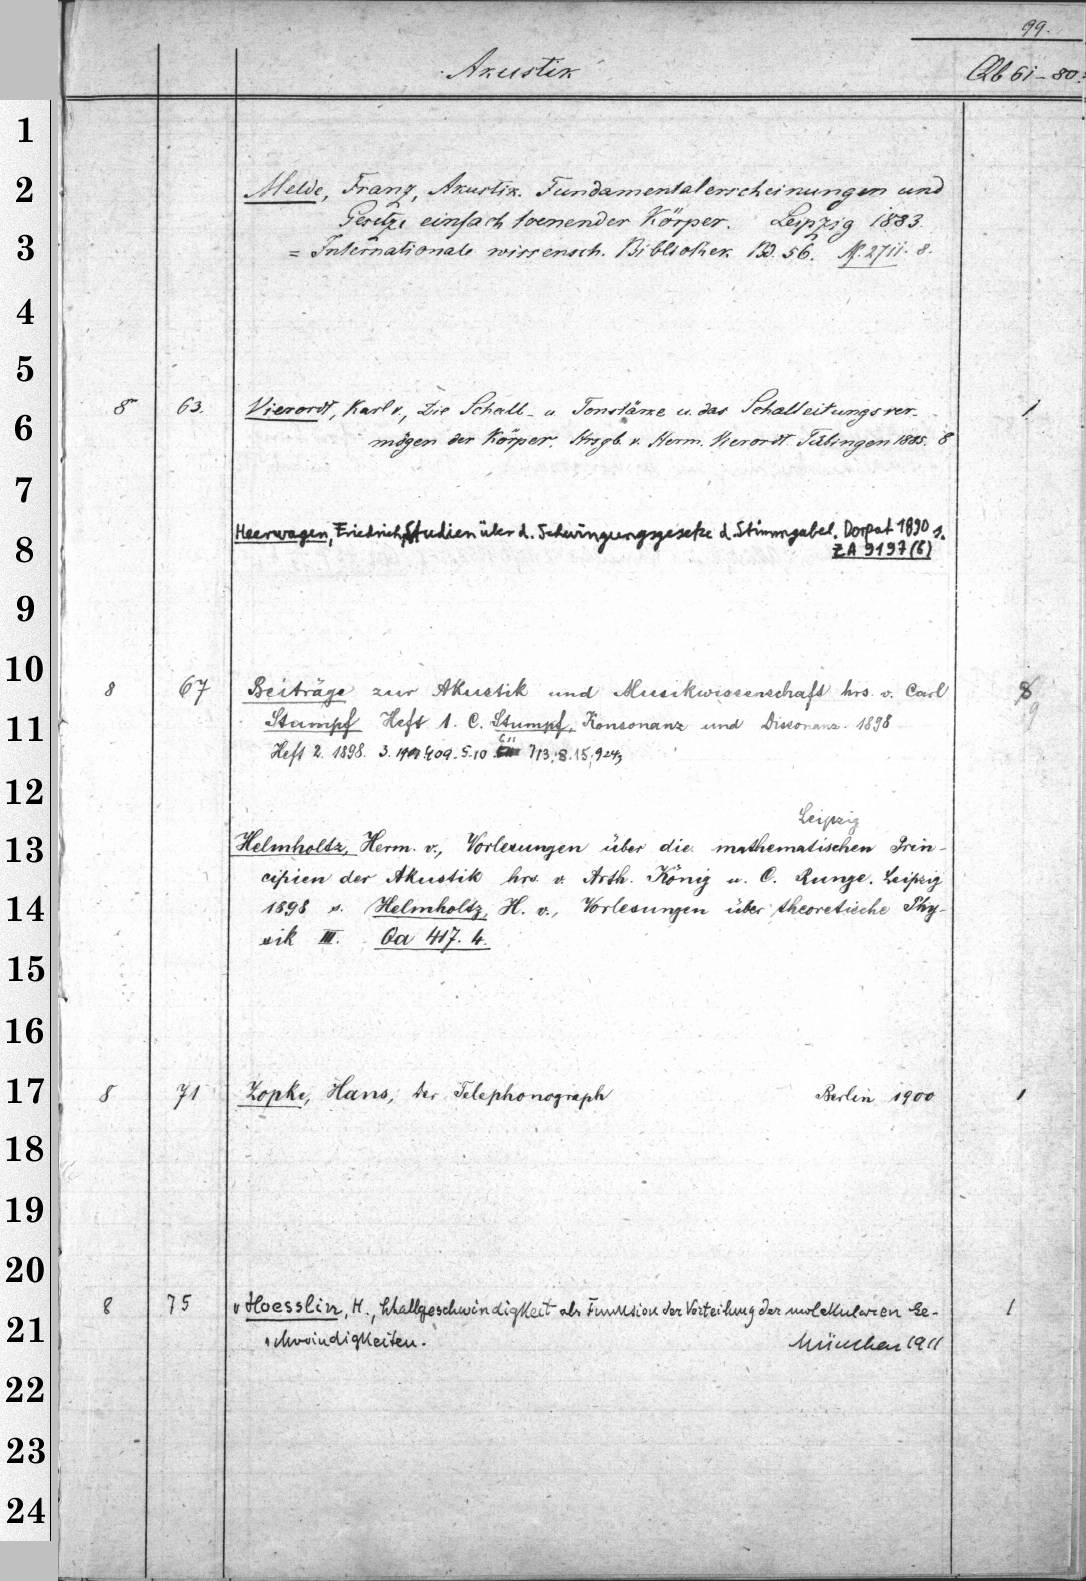 99.
Akustik Qb 61-80.
1
2
3
4
5
6
7
8
9
10
11
12
13
14
15
16
17
18
19
20
21
22
23
24
Melde, Franz, Akustik. Fundamentalerscheinungen und
Gesetze einfach toenender Körper. Leipzig 1883.
= Internationale wissensch. Bibliothek Bd. 56. M. 2711. 8.
8 63. Vierordt, Karl v., Die Schall- u. Tonstärke u. das Schalleitungsver- 1
mögen der Körper. Hrsgb. v. Herm. Vierordt. Tübingen 1885. 8
Heerwagen, Friedrich, Studien über d. Schwingungsgesetze d. Stimmgabel. Dorpat 1890 s.
ZA 9197(6)
8 67 Beiträge zur Akustik und Musikwissenschaft hrs. v. Carl 8 9
Stumpf Heft 1. C. Stumpf, Konsonanz und Dissonanz. 1898
Heft 2. 1898. 3. 1901. 4.09. 5.10 6.11 7.13. 8.15, 9 24,
Leipzig
Helmholtz, Herm. v., Vorlesungen über die mathematischen Prin-
cipien der Akustik hrs. v. Arth. König u. C. Runge. Leipzig
1898 s. Helmholtz, H. v., Vorlesungen über theoretische Phy-
sik III. Qa 417. 4.
8 71 Zopke, Hans, Der Telephonograph Berlin 1900 1
8 75 v Hoesslin, H., Schallgeschwindigkeit als Funktion der Verteilung der molekularen Ge- 1
schwindigkeiten. München 1911